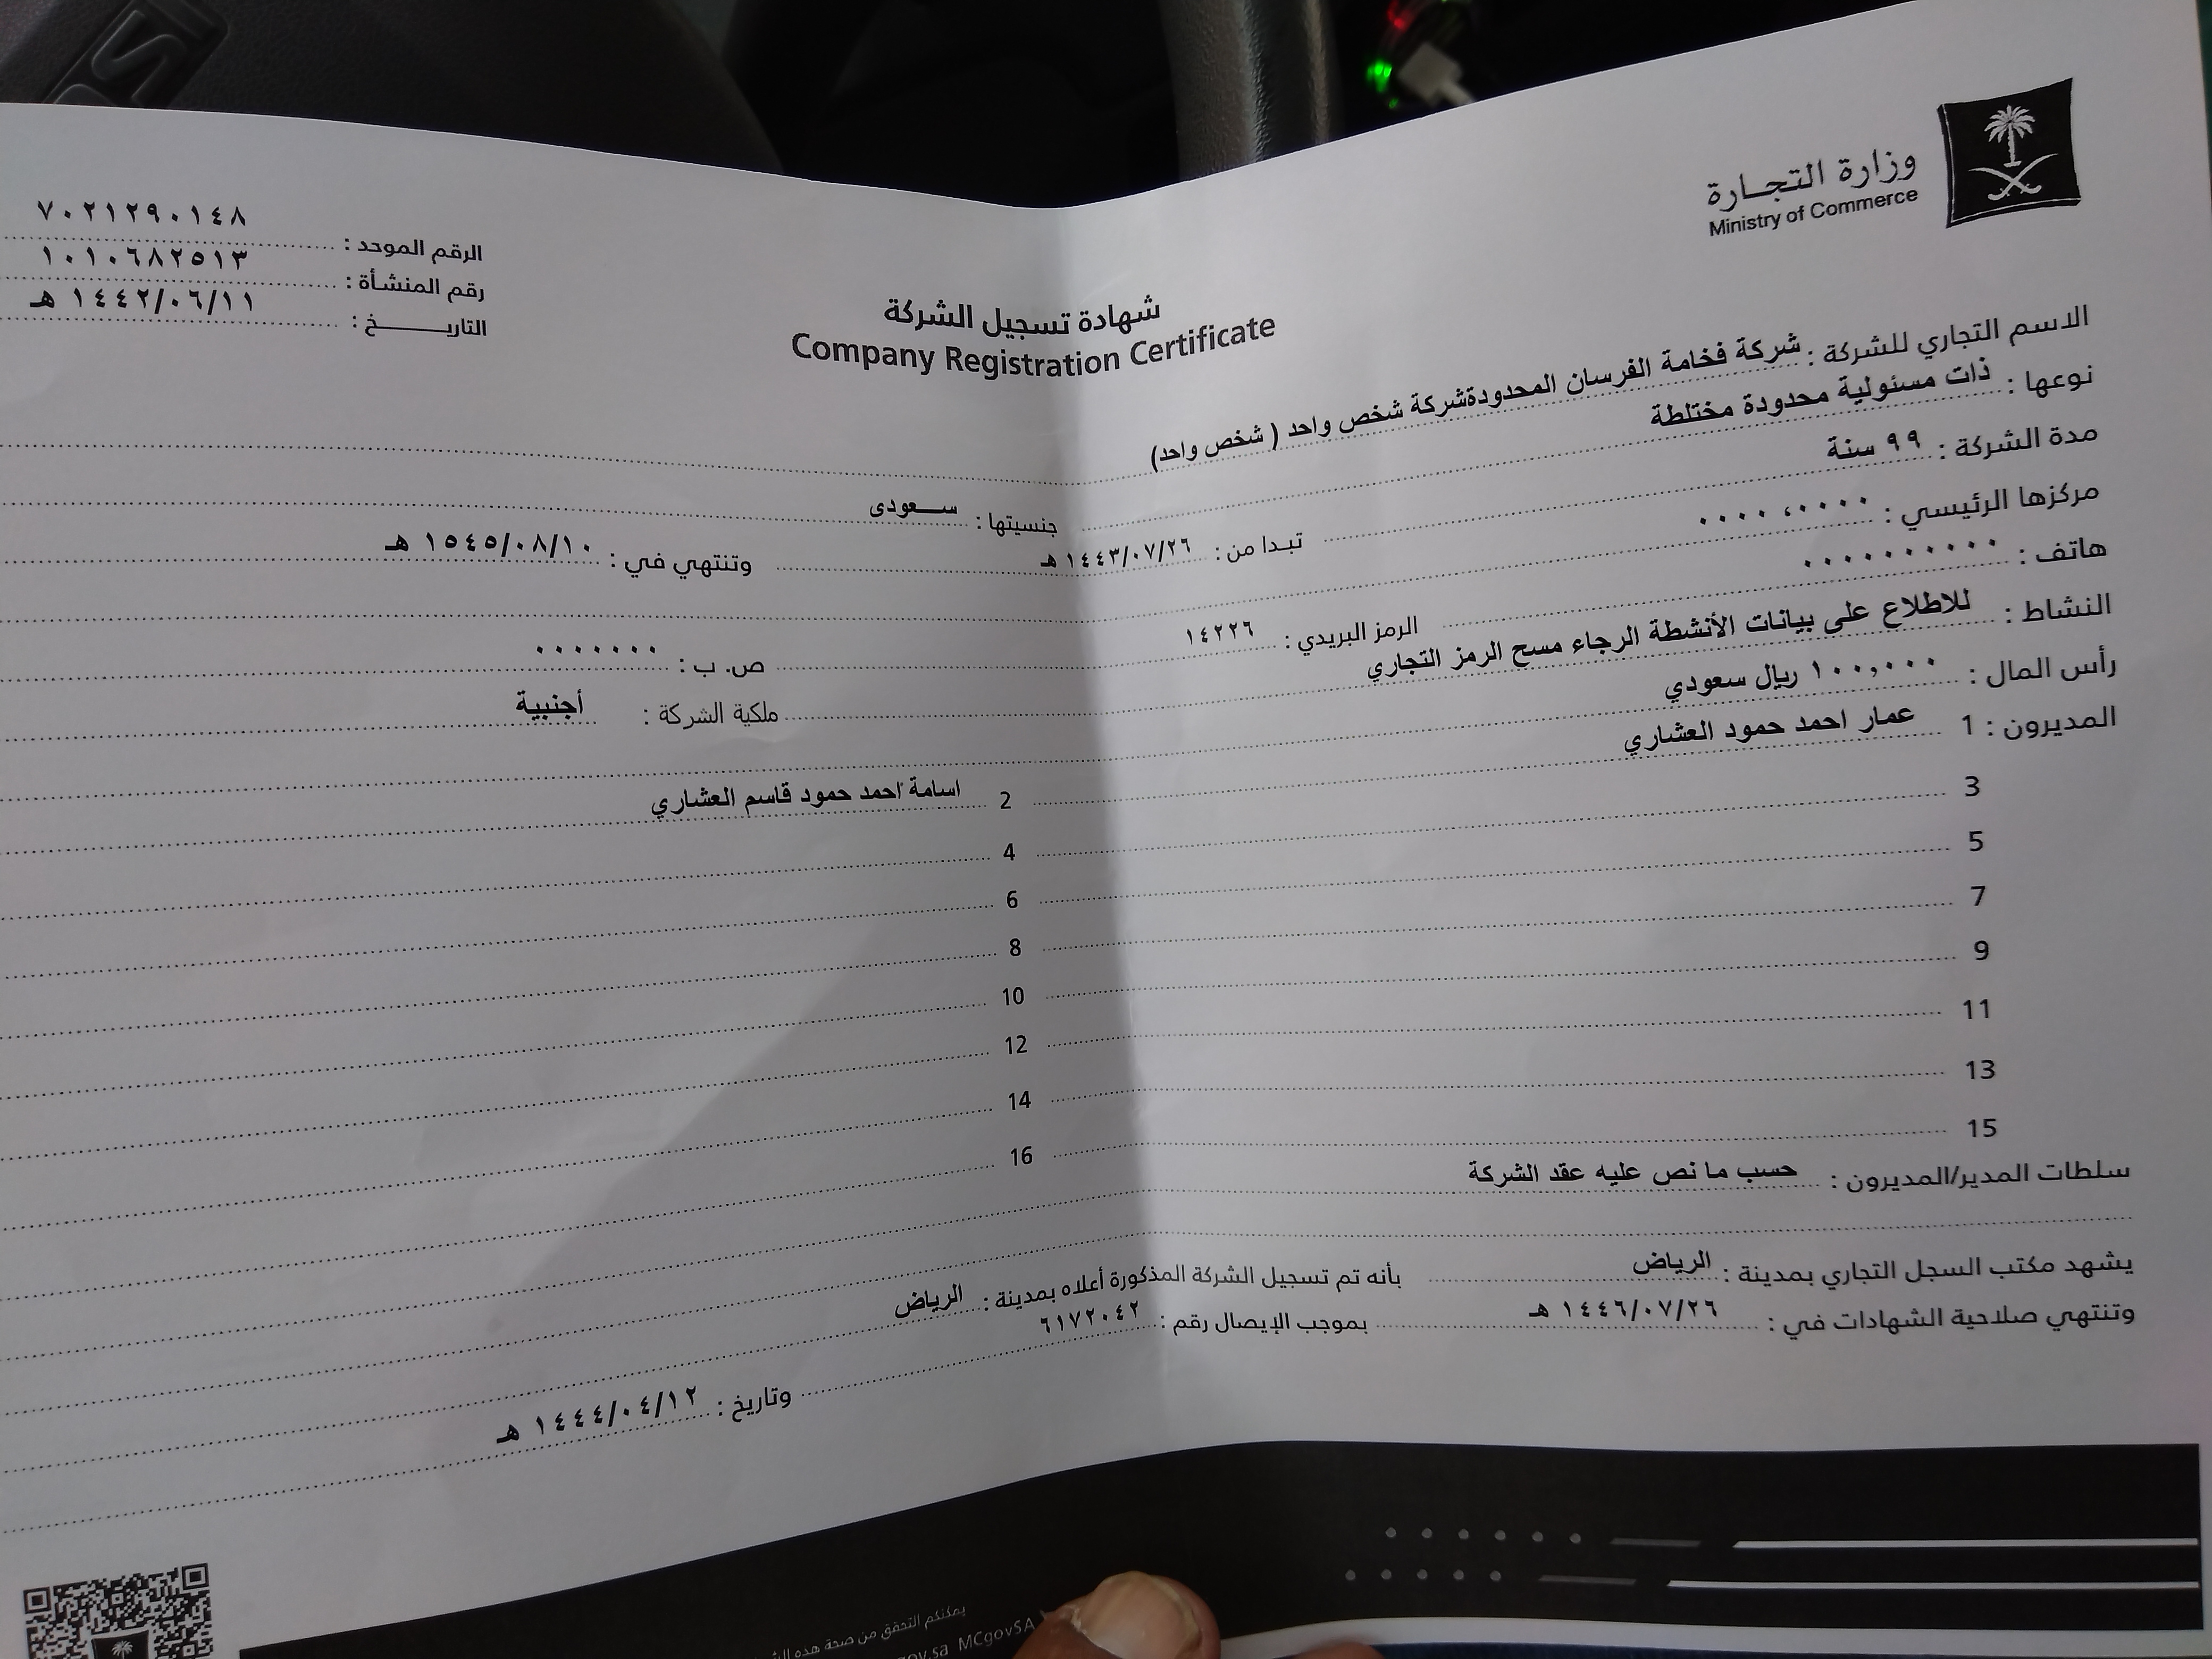 وزارة التجـارة
Ministry of Commerce
الرقم الموحد : ٧٠٢١٢٩٠١٤٨
رقم المنشأة : ١٠١٠٦٨٢٥١٣
التاريـــــخ : ١٤٤٢/٠٦/١١ هـ
شهادة تسجيل الشركة
Company Registration Certificate
الاسم التجاري للشركة : شركة فخامة الفرسان المحدودةشركة شخص واحد ( شخص واحد)
نوعها : ذات مسئولية محدودة مختلطة جنسيتها : سـعودى
مدة الشركة : ٩٩ سنة تبـدا من : ١٤٤٣/٠٧/٢٦ هـ وتنتهي في : ١٥٤٥/٠٨/١٠ هـ
مركزها الرئيسي : ٠٠٠٠، ٠٠٠٠
هاتف : ٠٠٠٠٠٠٠٠٠٠ الرمز البريدي : ١٤٢٢٦ ص. ب : ٠٠٠٠٠٠٠
النشاط : للاطلاع على بيانات الأنشطة الرجاء مسح الرمز التجاري ملكية الشركة : أجنبية
رأس المال : ١٠٠,٠٠٠ ريال سعودي
المديرون : 1 عمار احمد حمود العشاري 2 اسامة احمد حمود قاسم العشاري
3 4
5 6
7 8
9 10
11 12
13 14
15 16
سلطات المدير/المديرون : حسب ما نص عليه عقد الشركة
يشهد مكتب السجل التجاري بمدينة : الرياض بأنه تم تسجيل الشركة المذكورة أعلاه بمدينة : الرياض
وتنتهي صلاحية الشهادات في : ١٤٤٦/٠٧/٢٦ هـ بموجب الإيصال رقم : ٦١٧٢٠٤٢ وتاريخ : ١٤٤٤/٠٤/١٢ هـ
يمكنكم التحقق من صحة هذه
gov.sa MCgovSA